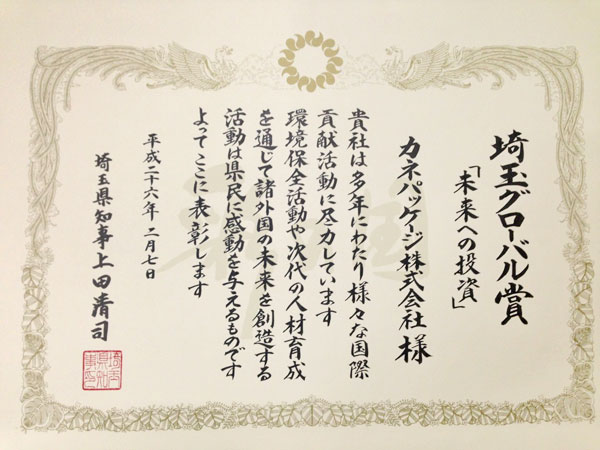 埼玉グローバル賞
「未来への投資」
カネパッケージ株式会社 様
貴社は多年にわたり様々な国際
貢献活動に尽力しています
環境保全活動や次代の人材育成
を通じて諸外国の未来を創造する
活動は県民に感動を与えるものです
よってここに表彰します
平成二十六年 二月七日
埼玉県知事 上田清司
埼玉県知事之印